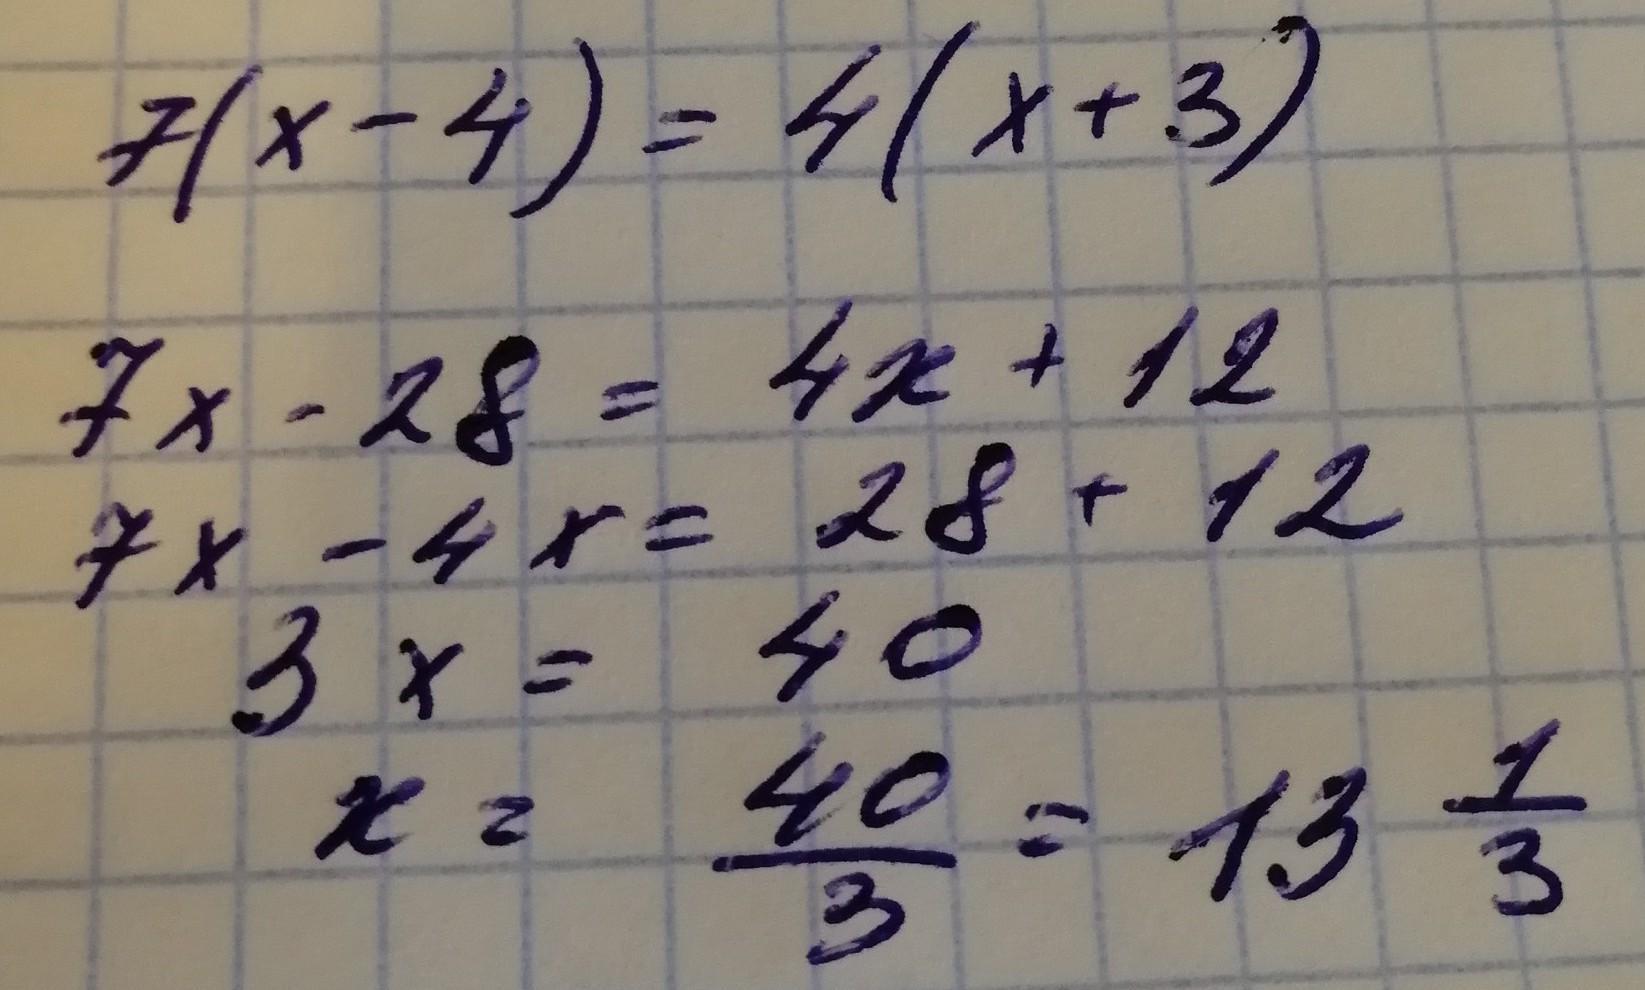 7(x-4) = 4(x+3)
7x - 28 = 4x + 12
7x - 4x = 28 + 12
3x = 40
x = 40/3 = 13 1/3